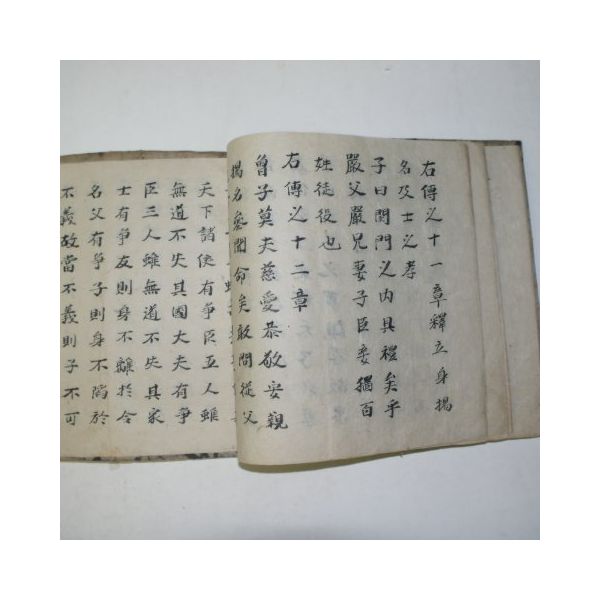 右傳之十一章釋立身揚
名及士之孝
子曰閨門之内具禮矣乎
嚴父嚴兄妻子臣妾猶百
姓徒役也
右傳之十二章
曾子莫夫慈愛恭敬安親
揚名參聞命矣敢問從父
天下諸侯有爭臣五人雖
無道不失其國大夫有爭
臣三人雖無道不失其家
士有爭友則身不離於令
名父有爭子則身不陷於
不義故當不義則子不可